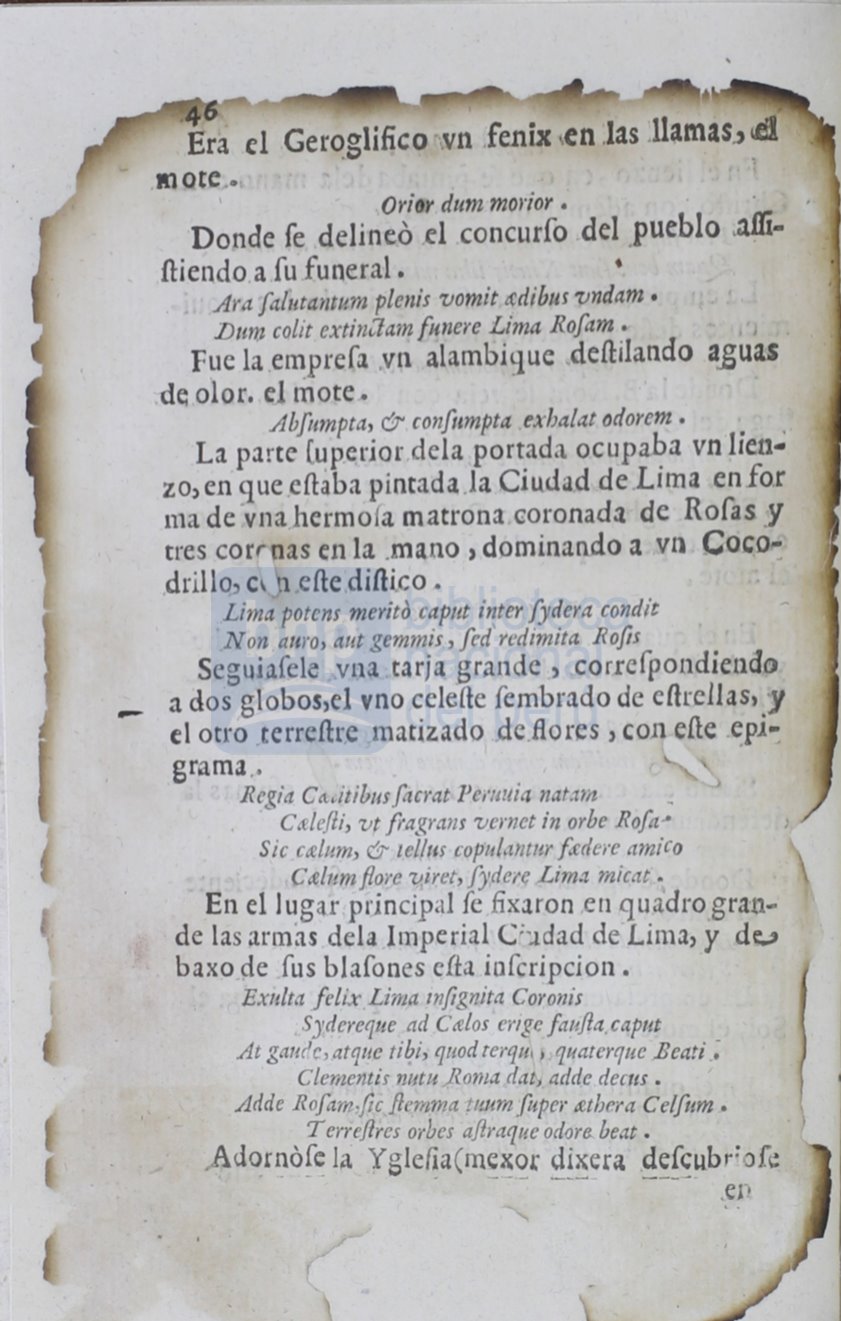 46
Era el Geroglifico vn fenix en las llamas, el
mote.
Orior dum morior.
Donde ſe delineò el concurſo del pueblo aſſi-
ſtiendo a ſu funeral.
Ara ſalutantum plenis vomit ædibus vndam.
Dum colit extinctam funere Lima Roſam.
Fue la empreſa vn alambique deſtilando aguas
de olor. el mote.
Abſumpta, & conſumpta exhalat odorem.
La parte ſuperior dela portada ocupaba vn lien-
zo, en que eſtaba pintada la Ciudad de Lima en for
ma de vna hermoſa matrona coronada de Roſas y
tres coronas en la mano, dominando a vn Coco-
drillo, con eſte diſtico.
Lima potens meritò caput inter ſydera condit
Non auro, aut gemmis, ſed redimita Roſis
Seguiaſele vna tarja grande, correſpondiendo
a dos globos, el vno celeſte ſembrado de eſtrellas, y
el otro terreſtre matizado de flores, con eſte epi-
grama.
Regia Cælitibus ſacrat Peruuia natam
Cæleſti, vt fragrans vernet in orbe Roſa
Sic cælum, & tellus copulantur fædere amico
Cælum flore viret, ſydere Lima micat.
En el lugar principal ſe fixaron en quadro gran-
de las armas dela Imperial Ciudad de Lima, y de
baxo de ſus blaſones eſta inſcripcion.
Exulta felix Lima inſignita Coronis
Sydereque ad Cælos erige fauſta caput
At gaude, atque tibi, quod terque, quaterque Beati.
Clementis nutu Roma dat, adde decus.
Adde Roſam, ſic ſtemma tuum ſuper æthera Celſum.
Terreſtres orbes aſtraque odore beat.
Adornòſe la Ygleſia (mexor dixera deſcubrioſe
en
biblioteca
nacional
del perú